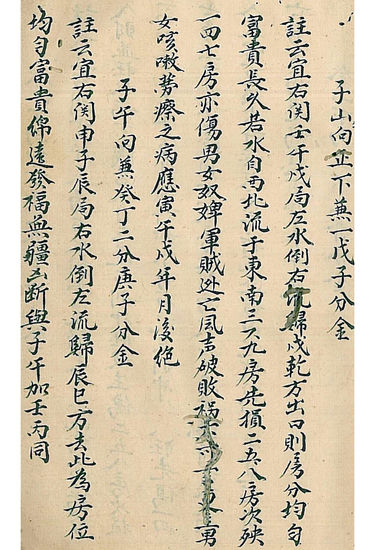 子山向正下兼一戊子分金
註云宜右関壬午戌局左水倒右流歸戌乾方出口則房分均匀
富貴長久若水自西北流于東南三六九房先損二五八房次殃
一四七房亦傷男女奴婢軍賊迯亡風声破敗禍 男
女咳嗽劳瘵之病應寅午戌年月後绝
子午向兼癸丁二分庚子分金
註云宜右関申子辰局右水倒左流歸辰巳方去此為房位
均匀富貴綿遠發福無疆凶断與子午加壬丙同